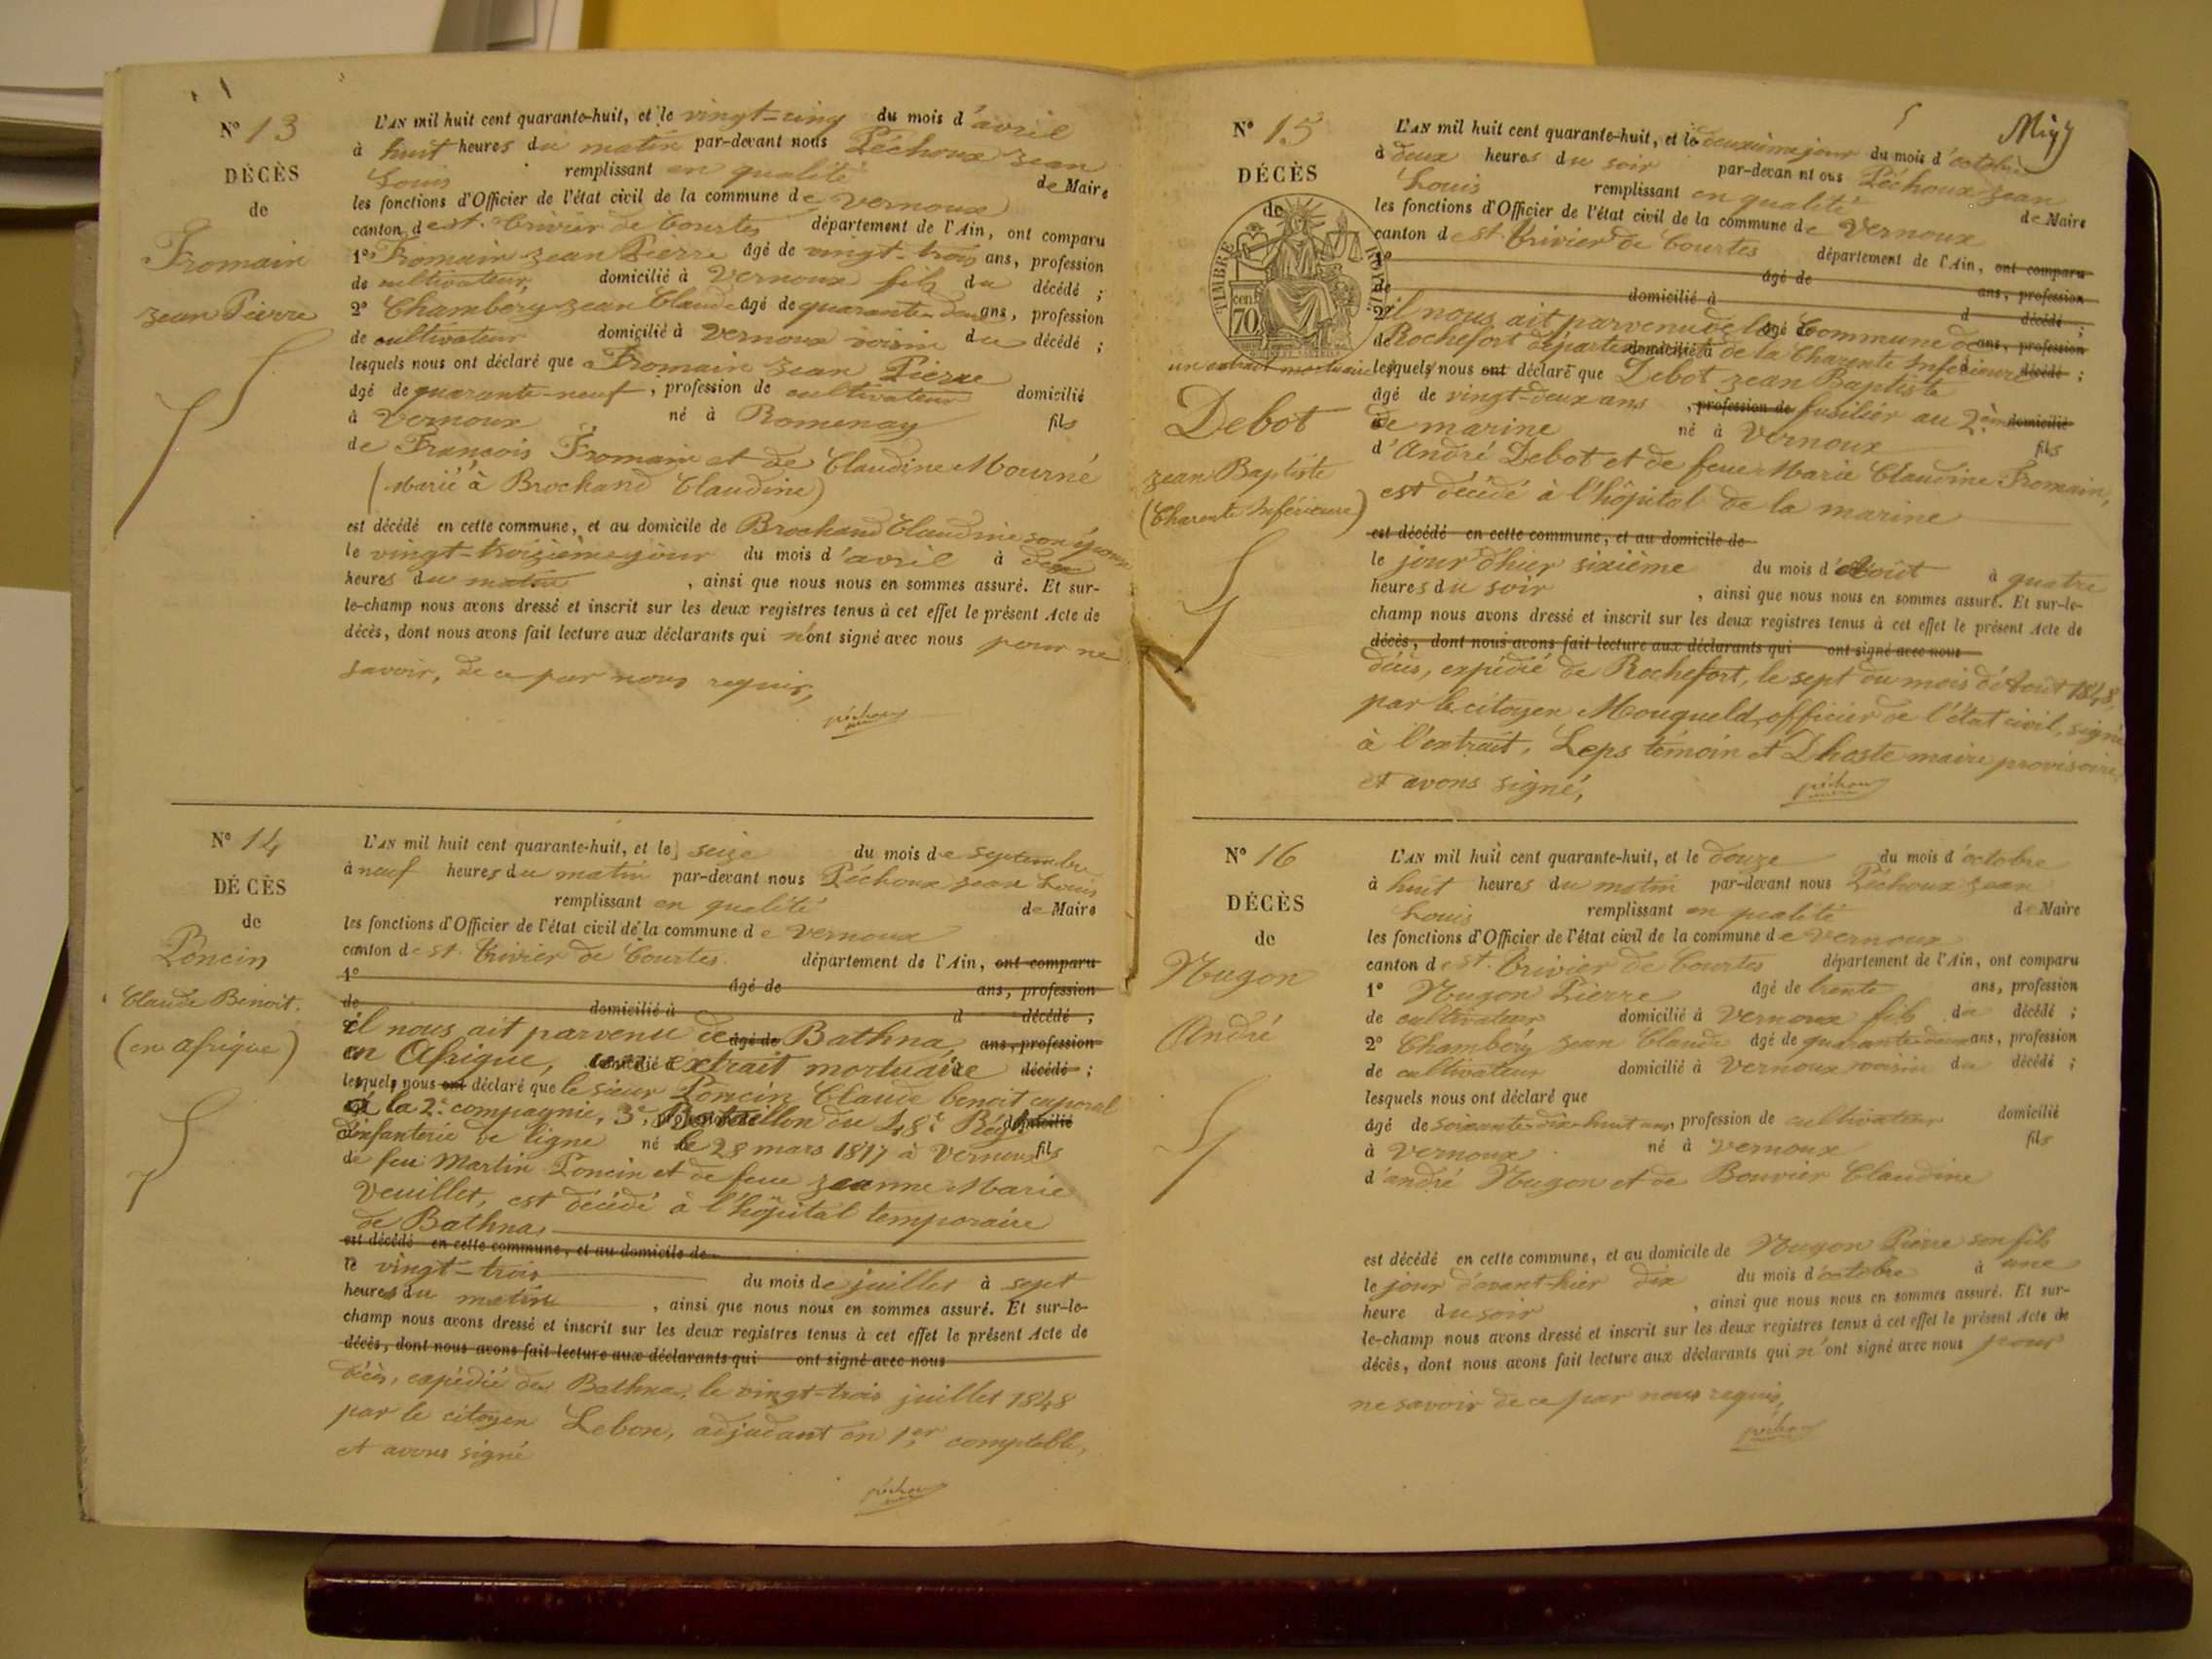 N° 13
DÉCÈS
de
Fromain
Jean Pierre
L'AN mil huit cent quarante-huit, et le vingt-cinq du mois d'avril
à huit heures du matin par-devant nous Péchoux Jean
Louis remplissant en qualité de Maire
les fonctions d'Officier de l'état civil de la commune de Vernoux
canton de St. Trivier de Courtes département de l'Ain, ont comparu
1° Fromain Jean Pierre âgé de vingt-trois ans, profession
de cultivateur, domicilié à Vernoux fils du décédé ;
2° Chambery Jean Claude âgé de quarante-deux ans, profession
de cultivateur domicilié à Vernoux voisin du décédé ;
lesquels nous ont déclaré que Fromain Jean Pierre
âgé de quarante-neuf, profession de cultivateur domicilié
à Vernoux né à Romenay fils
de François Fromain et de Claudine Mourné
(Marié à Brochand Claudine)
est décédé en cette commune, et au domicile de Brochand Claudine son épouse
le vingt-troisième jour du mois d'avril à dix
heures du matin, ainsi que nous nous en sommes assuré. Et sur-
le-champ nous avons dressé et inscrit sur les deux registres tenus à cet effet le présent Acte de
décès, dont nous avons fait lecture aux déclarants qui n'ont signé avec nous pour ne
savoir, de ce par nous requis,
péchoux
N° 14
DÉCÈS
de
Poncin
Claude Benoit.
(en afrique)
L'AN mil huit cent quarante-huit, et le seize du mois de septembre
à neuf heures du matin par-devant nous Péchoux Jean Louis
remplissant en qualité de Maire
les fonctions d'Officier de l'état civil de la commune de Vernoux
canton de St. Trivier de Courtes. département de l'Ain, ont comparu
1° âgé de ans, profession
de domicilié à d décédé ;
il nous ait parvenu de âgé de Bathna, ans, profession
en Afrique, extrait mortuaire décédé ;
lesquels nous ont déclaré que le sieur Poncin Claude benoit caporal
à la 2e compagnie, 3e Bataillon du 48e Régt domicilié
d'infanterie de ligne né le 28 mars 1817 à Vernoux fils
de feu Martin Poncin et de feue Jeanne Marie
Veuillet, est décédé à l'hôpital temporaire
de Bathna,
est décédé en cette commune, et au domicile de
le vingt-trois du mois de juillet à sept
heures du matin, ainsi que nous nous en sommes assuré. Et sur-le-
champ nous avons dressé et inscrit sur les deux registres tenus à cet effet le présent Acte de
décès, dont nous avons fait lecture aux déclarants qui ont signé avec nous
décès, expédié de Bathna, le vingt-trois juillet 1848
par le citoyen Lebon, adjudant en 1er comptable,
et avons signé
péchoux
N° 15
DÉCÈS
de
TIMBRE ROYAL
cen. 70
un extrait mortuaire
Debot
Jean Baptiste
(Charente Inférieure)
5
L'AN mil huit cent quarante-huit, et le deuxième jour du mois d'octobre
à deux heures du soir par-devan nt ous Péchoux Jean
Louis remplissant en qualité de Maire
les fonctions d'Officier de l'état civil de la commune de Vernoux
canton de St. Trivier de Courtes département de l'Ain, ont comparu
1° âgé de ans, profession
de domicilié à d décédé ;
2° il nous ait parvenu de la âgé de Commune de ans, profession
de Rochefort département domicilié à de la Charente Inférieure décédé ;
lesquels nous ont déclaré que Debot Jean Baptiste
âgé de vingt-deux ans, profession de fusilier au 2ème domicilié
de marine né à Vernoux fils
d'André Debot et de feue Marie Claudine Fromain,
est décédé à l'hôpital de la marine
est décédé en cette commune, et au domicile de
le jour d'hier sixième du mois d'Août à quatre
heures du soir, ainsi que nous nous en sommes assuré. Et sur-le-
champ nous avons dressé et inscrit sur les deux registres tenus à cet effet le présent Acte de
décès, dont nous avons fait lecture aux déclarants qui ont signé avec nous
décès, expédié de Rochefort, le sept du mois d'Août 1848,
par le citoyen Mouqueld, officier de l'état civil, signé
à l'extrait, Leps témoin et Dhoste maire provisoire,
et avons signé,
péchoux
N° 16
DÉCÈS
de
Nugon
André
L'AN mil huit cent quarante-huit, et le douze du mois d'octobre
à huit heures du matin par-devant nous Péchoux Jean
Louis remplissant en qualité de Maire
les fonctions d'Officier de l'état civil de la commune de Vernoux
canton de St. Trivier de Courtes département de l'Ain, ont comparu
1° Nugon Pierre âgé de trente ans, profession
de cultivateur domicilié à Vernoux fils du décédé ;
2° Chambéry Jean Claude âgé de quarante-deux ans, profession
de cultivateur domicilié à Vernoux voisin du décédé ;
lesquels nous ont déclaré que
âgé de soixante-dix-huit ans, profession de cultivateur domicilié
à Vernoux né à Vernoux fils
d'andré Nugon et de Bouvier Claudine
est décédé en cette commune, et au domicile de Nugon Pierre son fils
le jour d'avant-hier dix du mois d'octobre à une
heure du soir, ainsi que nous nous en sommes assuré. Et sur-
le-champ nous avons dressé et inscrit sur les deux registres tenus à cet effet le présent Acte de
décès, dont nous avons fait lecture aux déclarants qui n'ont signé avec nous pour
ne savoir de ce par nous requis,
péchoux